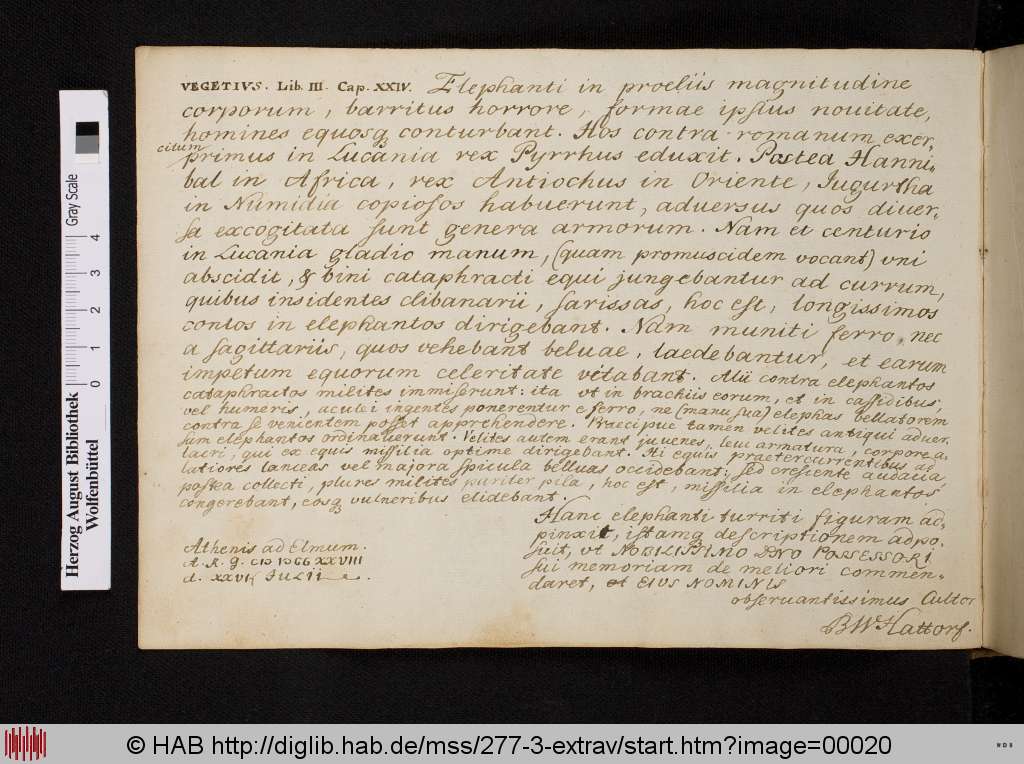 VEGETIVS. Lib. III. Cap. XXIV. Elephanti in proeliis magnitudine
corporum, barritus horrore, formae ipsius nouitate,
homines equosq conturbant. Hos contra romanum exer-
citum primus in Lucania rex Pyrrhus eduxit. Postea Hanni-
bal in Africa, rex Antiochus in Oriente, Jugurtha
in Numidia copiosos habuerunt, aduersus quos diuer-
sa excogitata sunt genera armorum. Nam et centurio
in Lucania gladio manum, (quam promuscidem vocant) vni
abscidit, & bini cataphracti equi jungebantur ad currum,
quibus insidentes clibanarii, sarissas, hoc est, longissimos
contos in elephantos dirigebant. Nam muniti ferro, nec
a sagittariis, quos vehebant beluae, laedebantur, et earum
impetum equorum celeritate vitabant. Alii contra elephantos
cataphractos milites immiserunt: ita vt in brachiis eorum, et in cassidibus,
vel humeris, aculei ingentes ponerentur e ferro, ne (manu sua) elephas bellatorem
contra se venientem posset apprehendere. Praecipue tamen velites antiqui aduer-
sum elephantos ordinauerunt. Velites autem erant juvenes, leui armatura, corpore a-
lacri, qui ex equis missilia optime dirigebant. Hi equis praetercurrentibus ad
latiores lanceas vel majora spicula belluas occidebant: sed cresiente audacia,
postea collecti, plures milites pariter pila, hoc est, missilia in elephantos
congerebant, eosq vulneribus elidebant.
Hanc elephanti turriti figuram ad-
pinxit, istamq descriptionem adpo-
suit, vt NOBILISSIMO DNO POSSESSORI
sui memoriam de meliori commen-
daret, et EIVS NOMINIS
observantissimus Cultor
BWHattorf.
Athenis ad Elmum.
A. R. G.
d. XXVI. JULII
Herzog August Bibliothek
Wolfenbüttel
Gray Scale
0 1 2 3 4
© HAB http://diglib.hab.de/mss/277-3-extrav/start.htm?image=00020
WDB